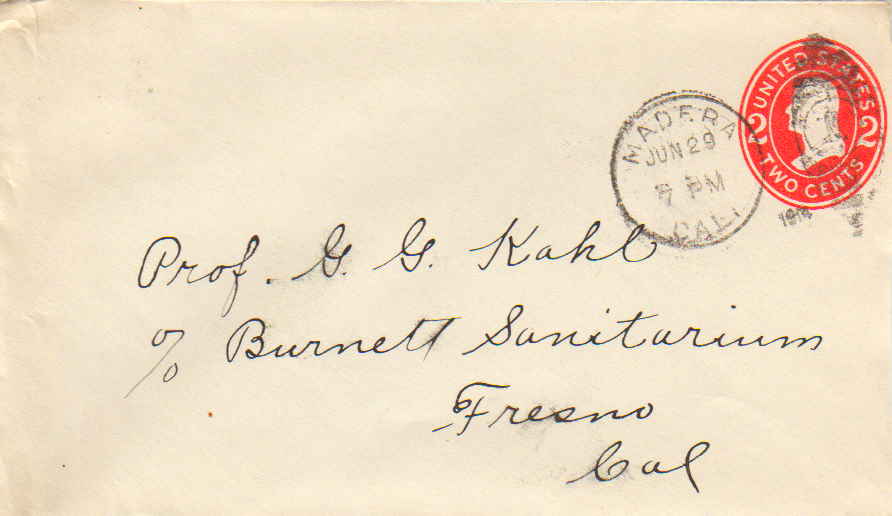 UNITED STATES
2 2
TWO CENTS
MADERA
JUN 29
7 PM
CAL.
Prof. G. G. Kahl
c/o Burnett Sanitarium
Fresno
Cal